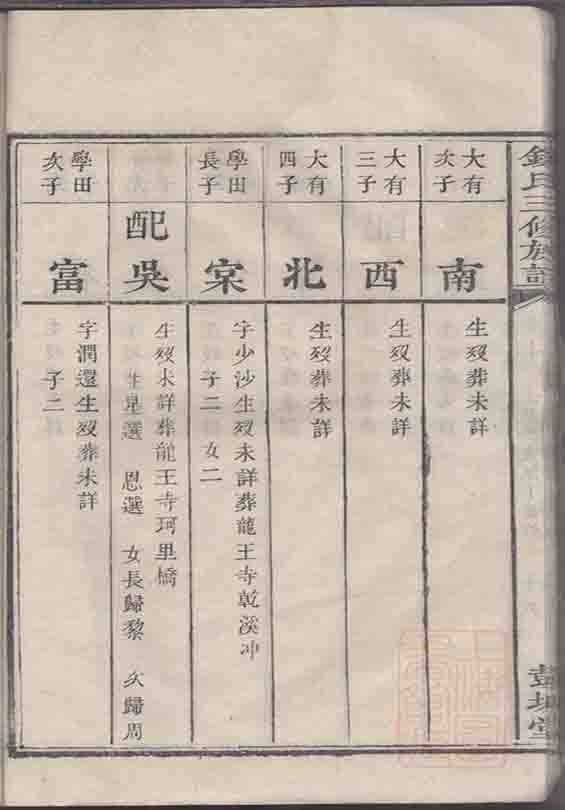 錢氏三修族譜
彭城堂
大有
次子
南
生歿葬未詳
大有
三子
西
生歿葬未詳
大有
四子
北
生歿葬未詳
學田
長子
宲
字少沙生歿未詳葬龍王寺乾溪冲
子二 女二
配吳
生歿未詳葬龍王寺珂里橋
生星選 恩選 女長歸黎 次歸周
學田
次子
富
字潤還生歿葬未詳
子二